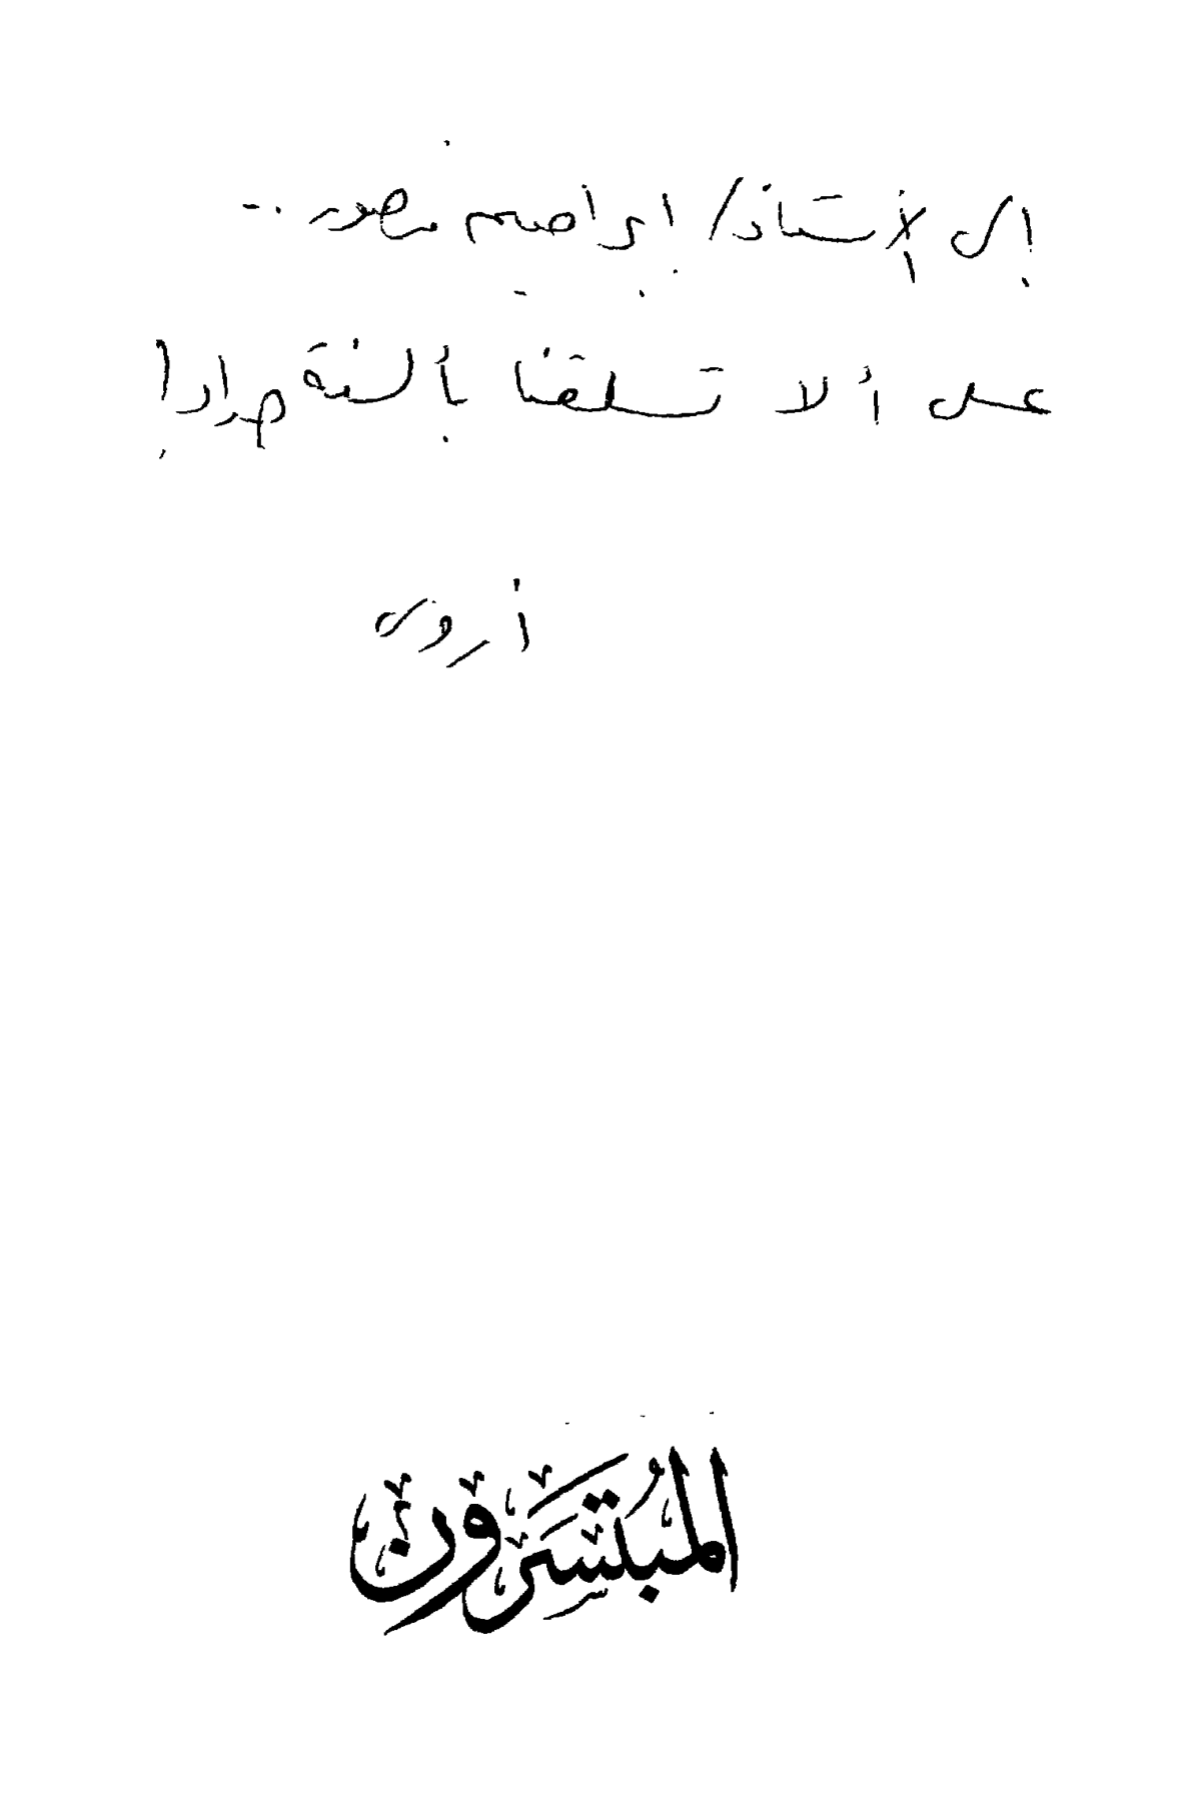 إلى الأستاذ/ إبراهيم منصور..
على ألا تسلقنا بألسنة حداد!
أروى
المُبتَسَرون